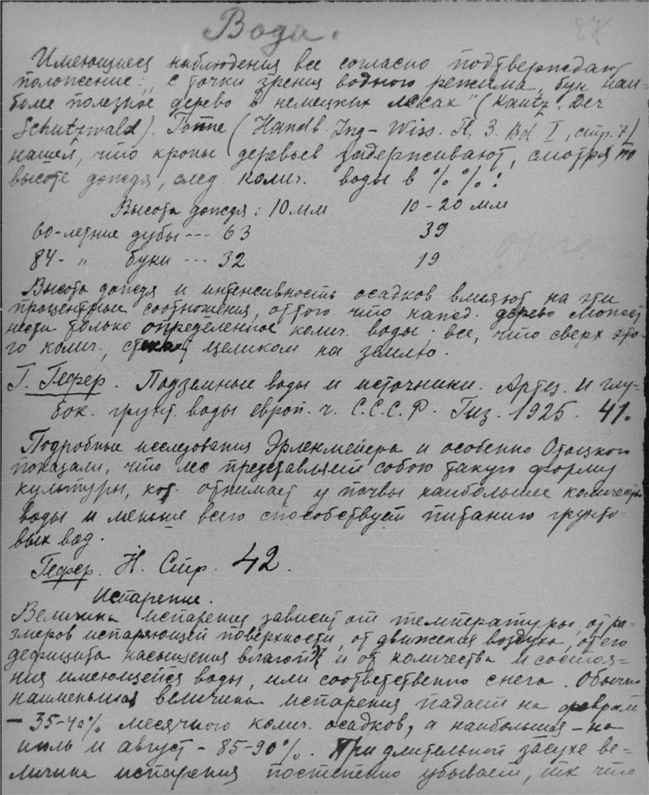 Вода.
87
Имеющиеся наблюдения все согласно подтверждают
положение: „с точки зрения водного режима, бук наи-
более полезное дерево в немецких лесах" (Kautz. Der
Schutzwald). Гоппе (Handb. Ing-Wiss. Й. 3. Bd I, стр. 7)
нашел, что кроны деревьев задерживают, смотря по
высоте дождя, след. колич. воды в %%:
Высота дождя: 10 мм 10-20 мм
60-летние дубы --- 63 39
84- " буки --- 32 19
Высота дождя и интенсивность осадков влияют на эти
процентные соотношения, оттого что напод. дерево может
нести только определенное колич. воды: все, что сверх это-
го колич., стекает целиком на землю.
Г. Гефер. Подземные воды и источники. Артез. и глу-
бок. грунт. воды европ. ч. С.С.С.Р. Гиз. 1925. 41.
Подробные исследования Эрлекмейера и особенно Отоцкого
показали, что лес представляет собою такую форму
культуры, кот. отнимает у почвы наибольшее количество
воды и менее всего способствует питанию грунто-
вых вод.
Гефер. Н. Стр. 42.
Испарение.
Величина испарения зависит от температуры, от ра-
змеров испаряющей поверхности, от движения воздуха, от его
дефицита насыщения влагой и от количества и состоя-
ния имеющейся воды, или соответственно снега. Обычно
наименьшая величина испарения падает на февраль
- 35-40% месячного колич. осадков, а наибольшая - на
июль и август - 85-90%. При длительной засухе ве-
личина испарения постепенно убывает, так что